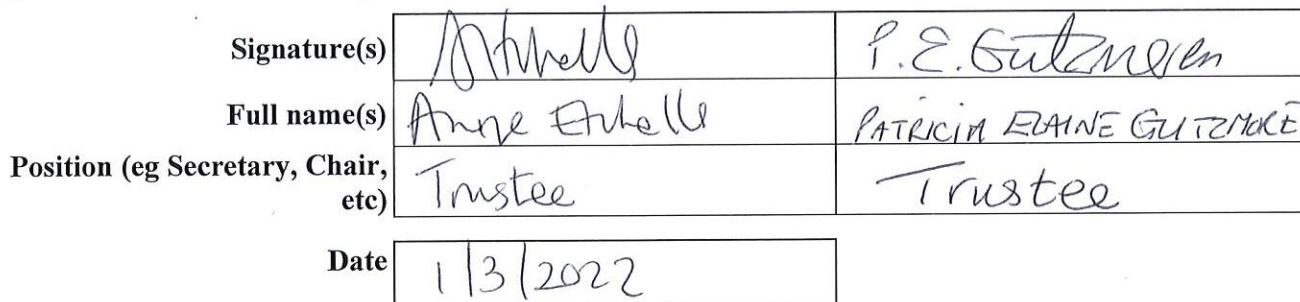 Signature(s) P.E. Gutzmore
Full name(s) Anne PATRICIA ELAINE GUTZMORE
Position (eg Secretary, Chair, etc) Trustee Trustee
Date 1/3/2022